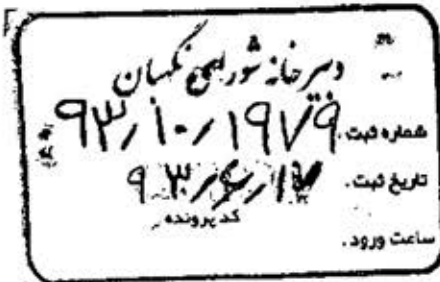 دبیرخانه شورای نگهبان
شماره ثبت. ۹۳/۱۰/۱۹۷۹
تاریخ ثبت. ۹۳/۶/۱۷
کد پرونده
ساعت ورود.